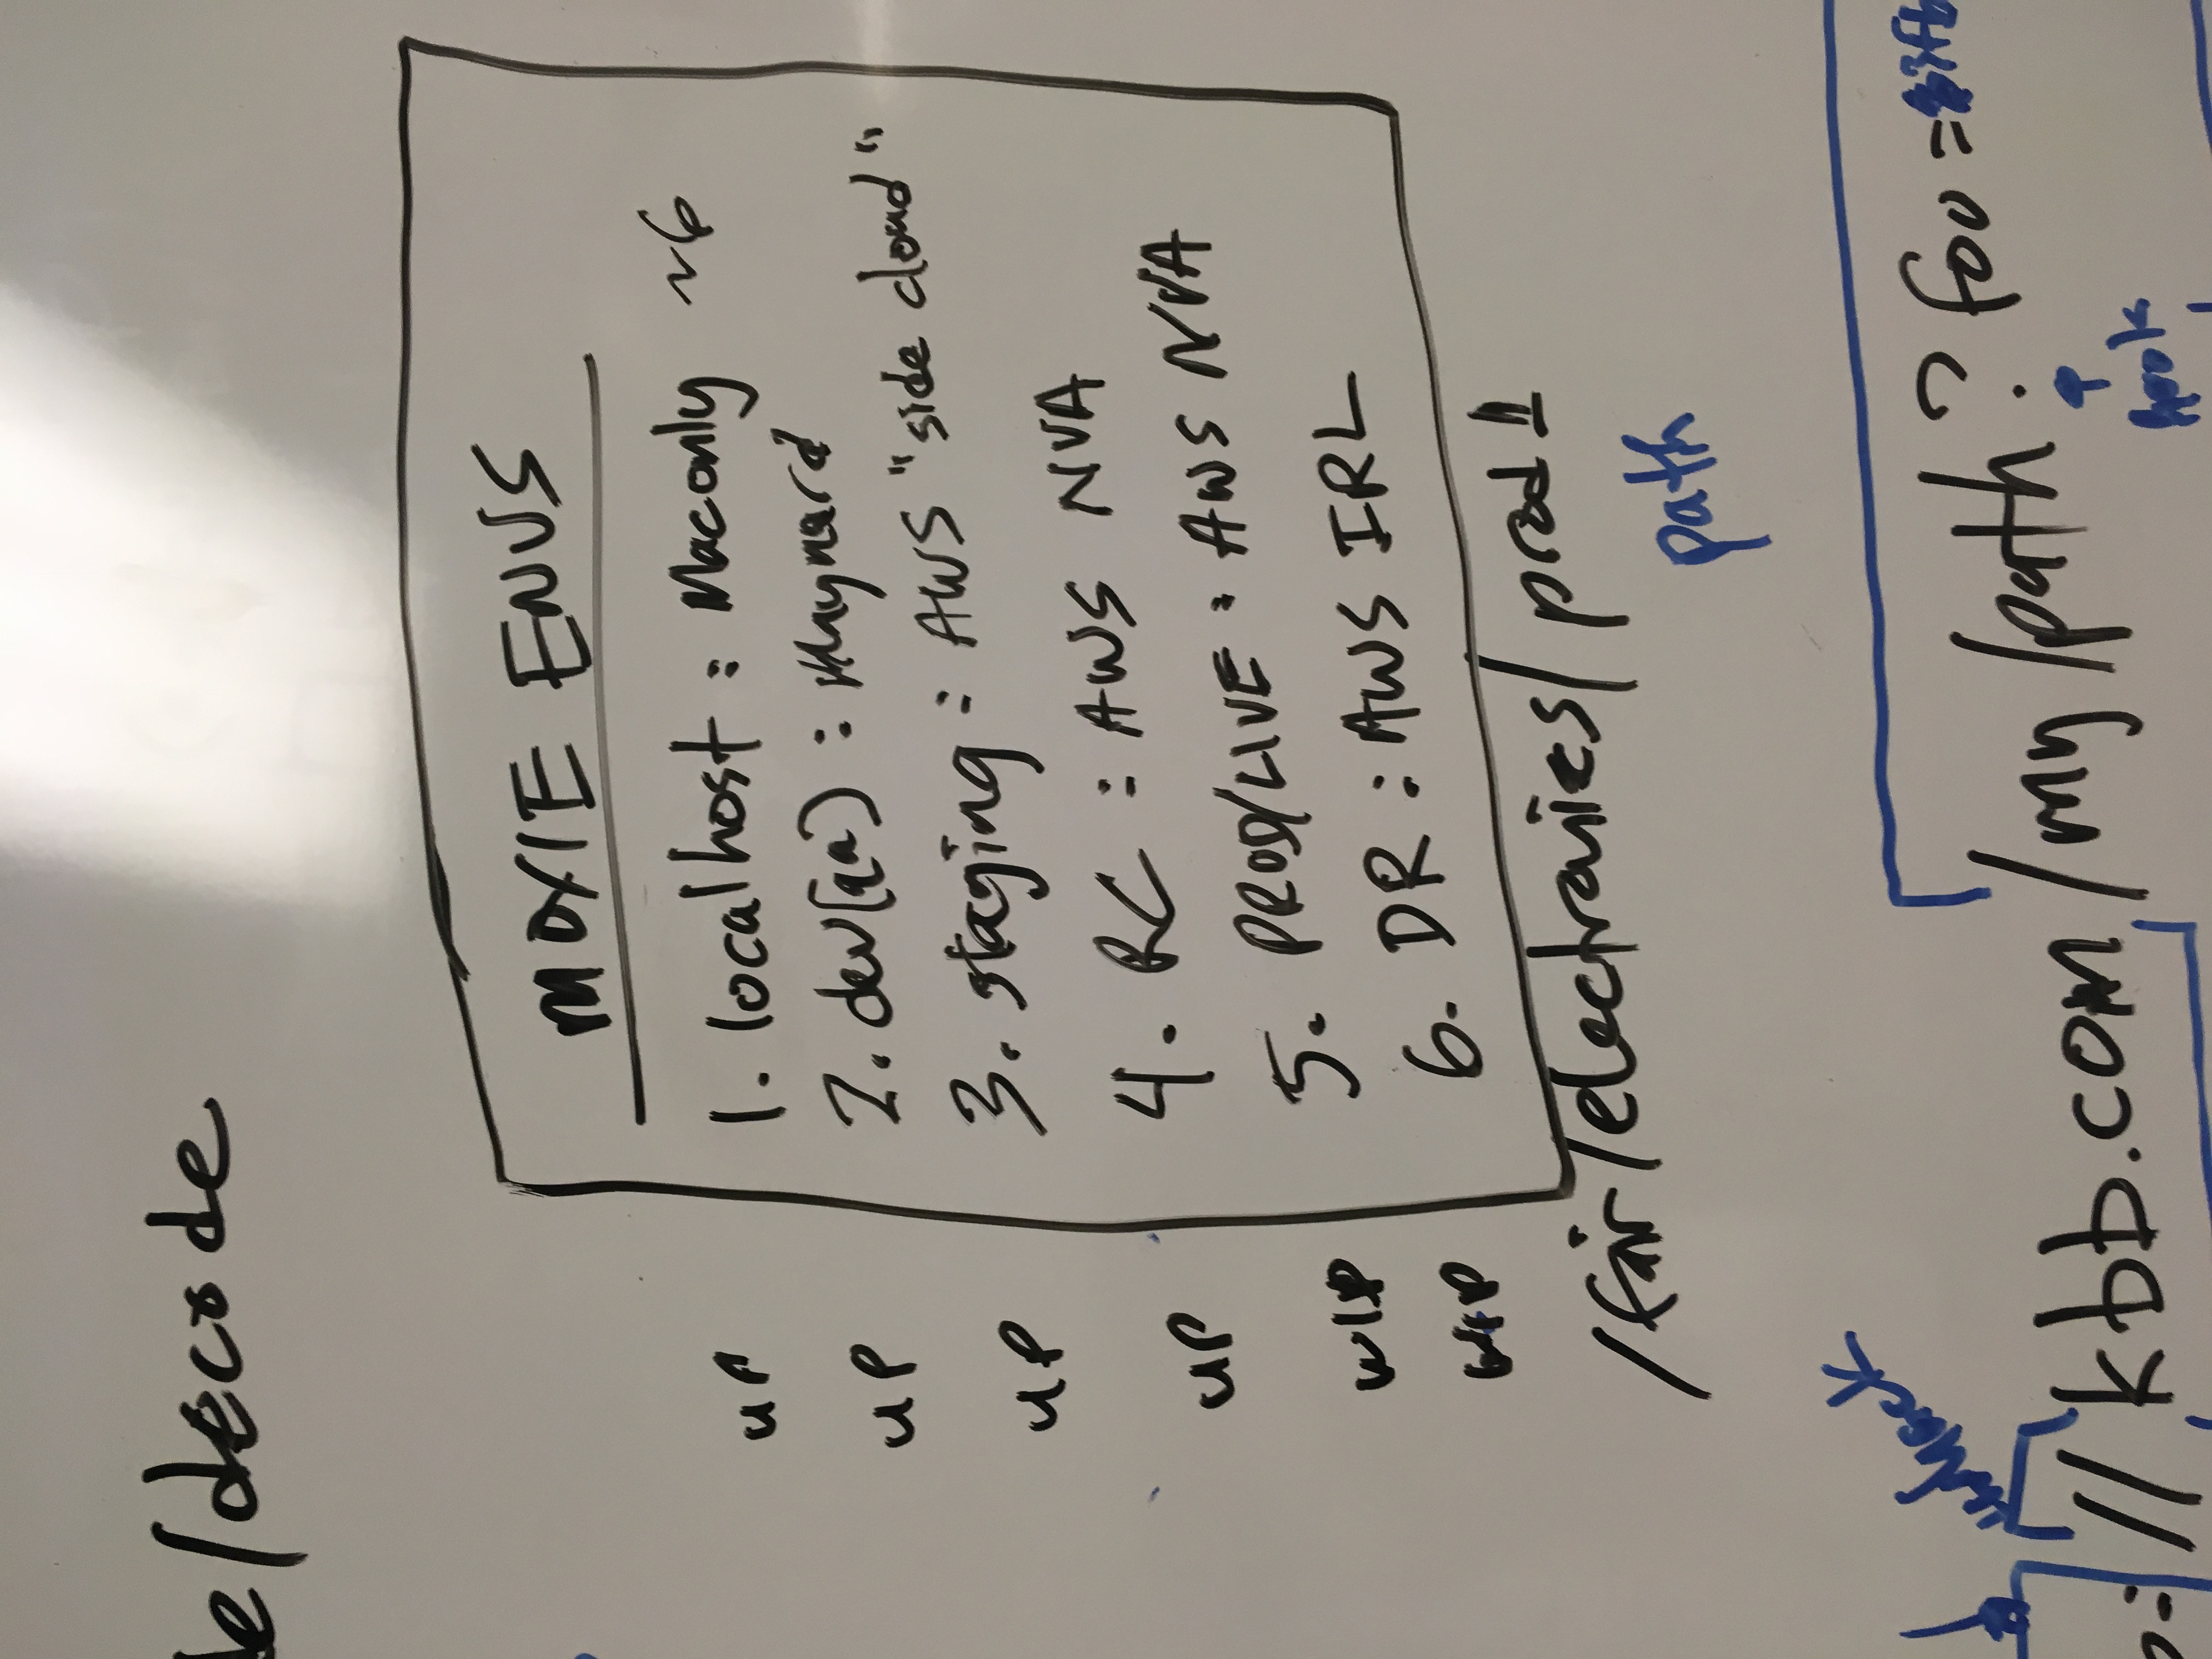 /decode
MOXIE ENVS
1. localhost : Maconly
up
2. dev(qa) : Maynard
up
3. staging : AWS "side cloud"
up
4. RC : AWS NVA
up
5. PROD/LIVE : AWS NVA
WIP
6. DR : AWS IRL
WIP
/fair/electronics/prod1
path
://kbb.com/my/path? foo=